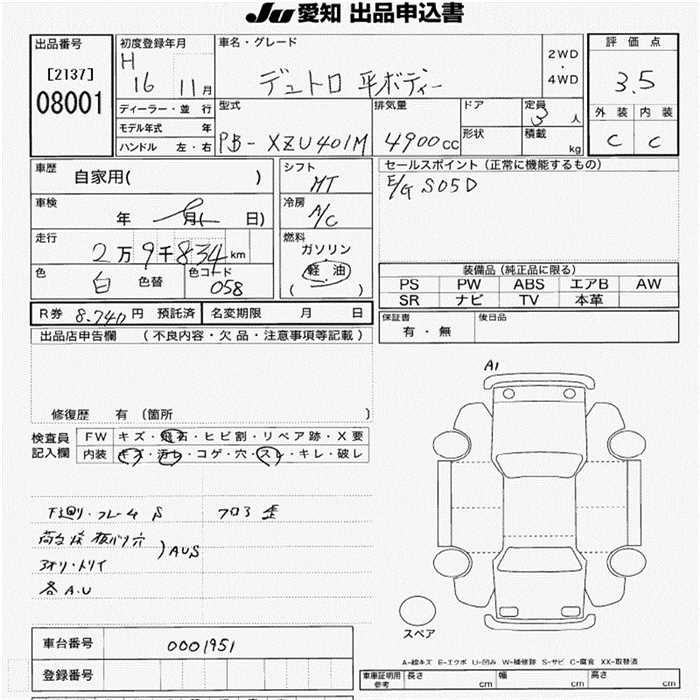 JU愛知 出品申込書
出品番号
[2137]
08001
初度登録年月
H
16 11月
ディーラー・並 行
モデル年式 年
ハンドル 左・右
車名・グレード
デュトロ 平ボディー
2WD
・
4WD
型式
PB-XZU401M
排気量
4900cc
ドア
形状
定員
3人
積載
kg
評価点
3.5
外装 内装
C C
車歴
自家用( )
車検
年 月( 日)
走行
2万9千834km
色
白
色替
色コード
058
シフト
MT
冷房
A/C
燃料
ガソリン
軽 油
( )
セールスポイント (正常に機能するもの)
E/G S05D
装備品 (純正品に限る)
PS PW ABS エアB AW
SR ナビ TV 本革
保証書
有・無
後日品
R券 8.740円 預託済 名変期限 月 日
出品店申告欄 (不良内容・欠品・注意事項等記載)
修復歴 有 (箇所 )
検査員
記入欄
FW キズ・飛石・ヒビ割・リペア跡・X要
内装 キズ・汚レ・コゲ・穴・スレ・キレ・破レ
下廻り・フレーム S
フロア
アオリ・トリイ
)AUS
各A.U
A1
スペア
車台番号 0001951
登録番号
A-線キズ E-エクボ U-凹み W-補修跡 S-サビ C-腐食 XX-取替済
車庫証明用
参考
長さ cm 幅 cm 高さ cm